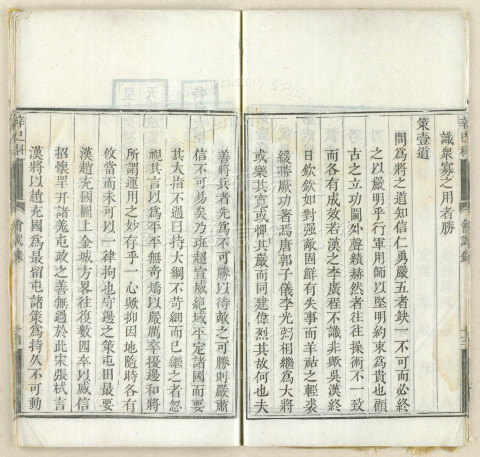 識衆寡之用者勝
策壹道
問為將之道知信仁勇嚴五者缺一不可而必終
之以嚴明乎行軍用師以堅明約束為貴也顧
古之立功閫外聲績赫然者往往操術不一致
而各有成效若漢之李廣程不識非歟吳漢終
日欽欽如對強敵固鮮有失事而羊祜之輕裘
緩帶厥功著焉唐郭子儀李光弼相繼為大將
或樂其寬或憚其嚴而同建偉烈其故何也夫
善將兵者先為不可勝以待敵之可勝則嚴肅
信不易矣乃班超宣威絶域平定諸國而要
其大指不過曰持大綱不苛細而已繼之者忽
視其言以為平平無奇矯以嚴厲卒擾邊和將
所謂運用之妙存乎一心歟抑因地隨時各有
攸當而未可以一律拘也守邊之策屯田最要
漢趙充國圖上金城方畧往復數四卒以威信
招𦍑罕开諸羌屯政之善無過於此宋張栻言
漢將以趙充國為最留屯諸策為持久不可動
辛巳科
會試錄